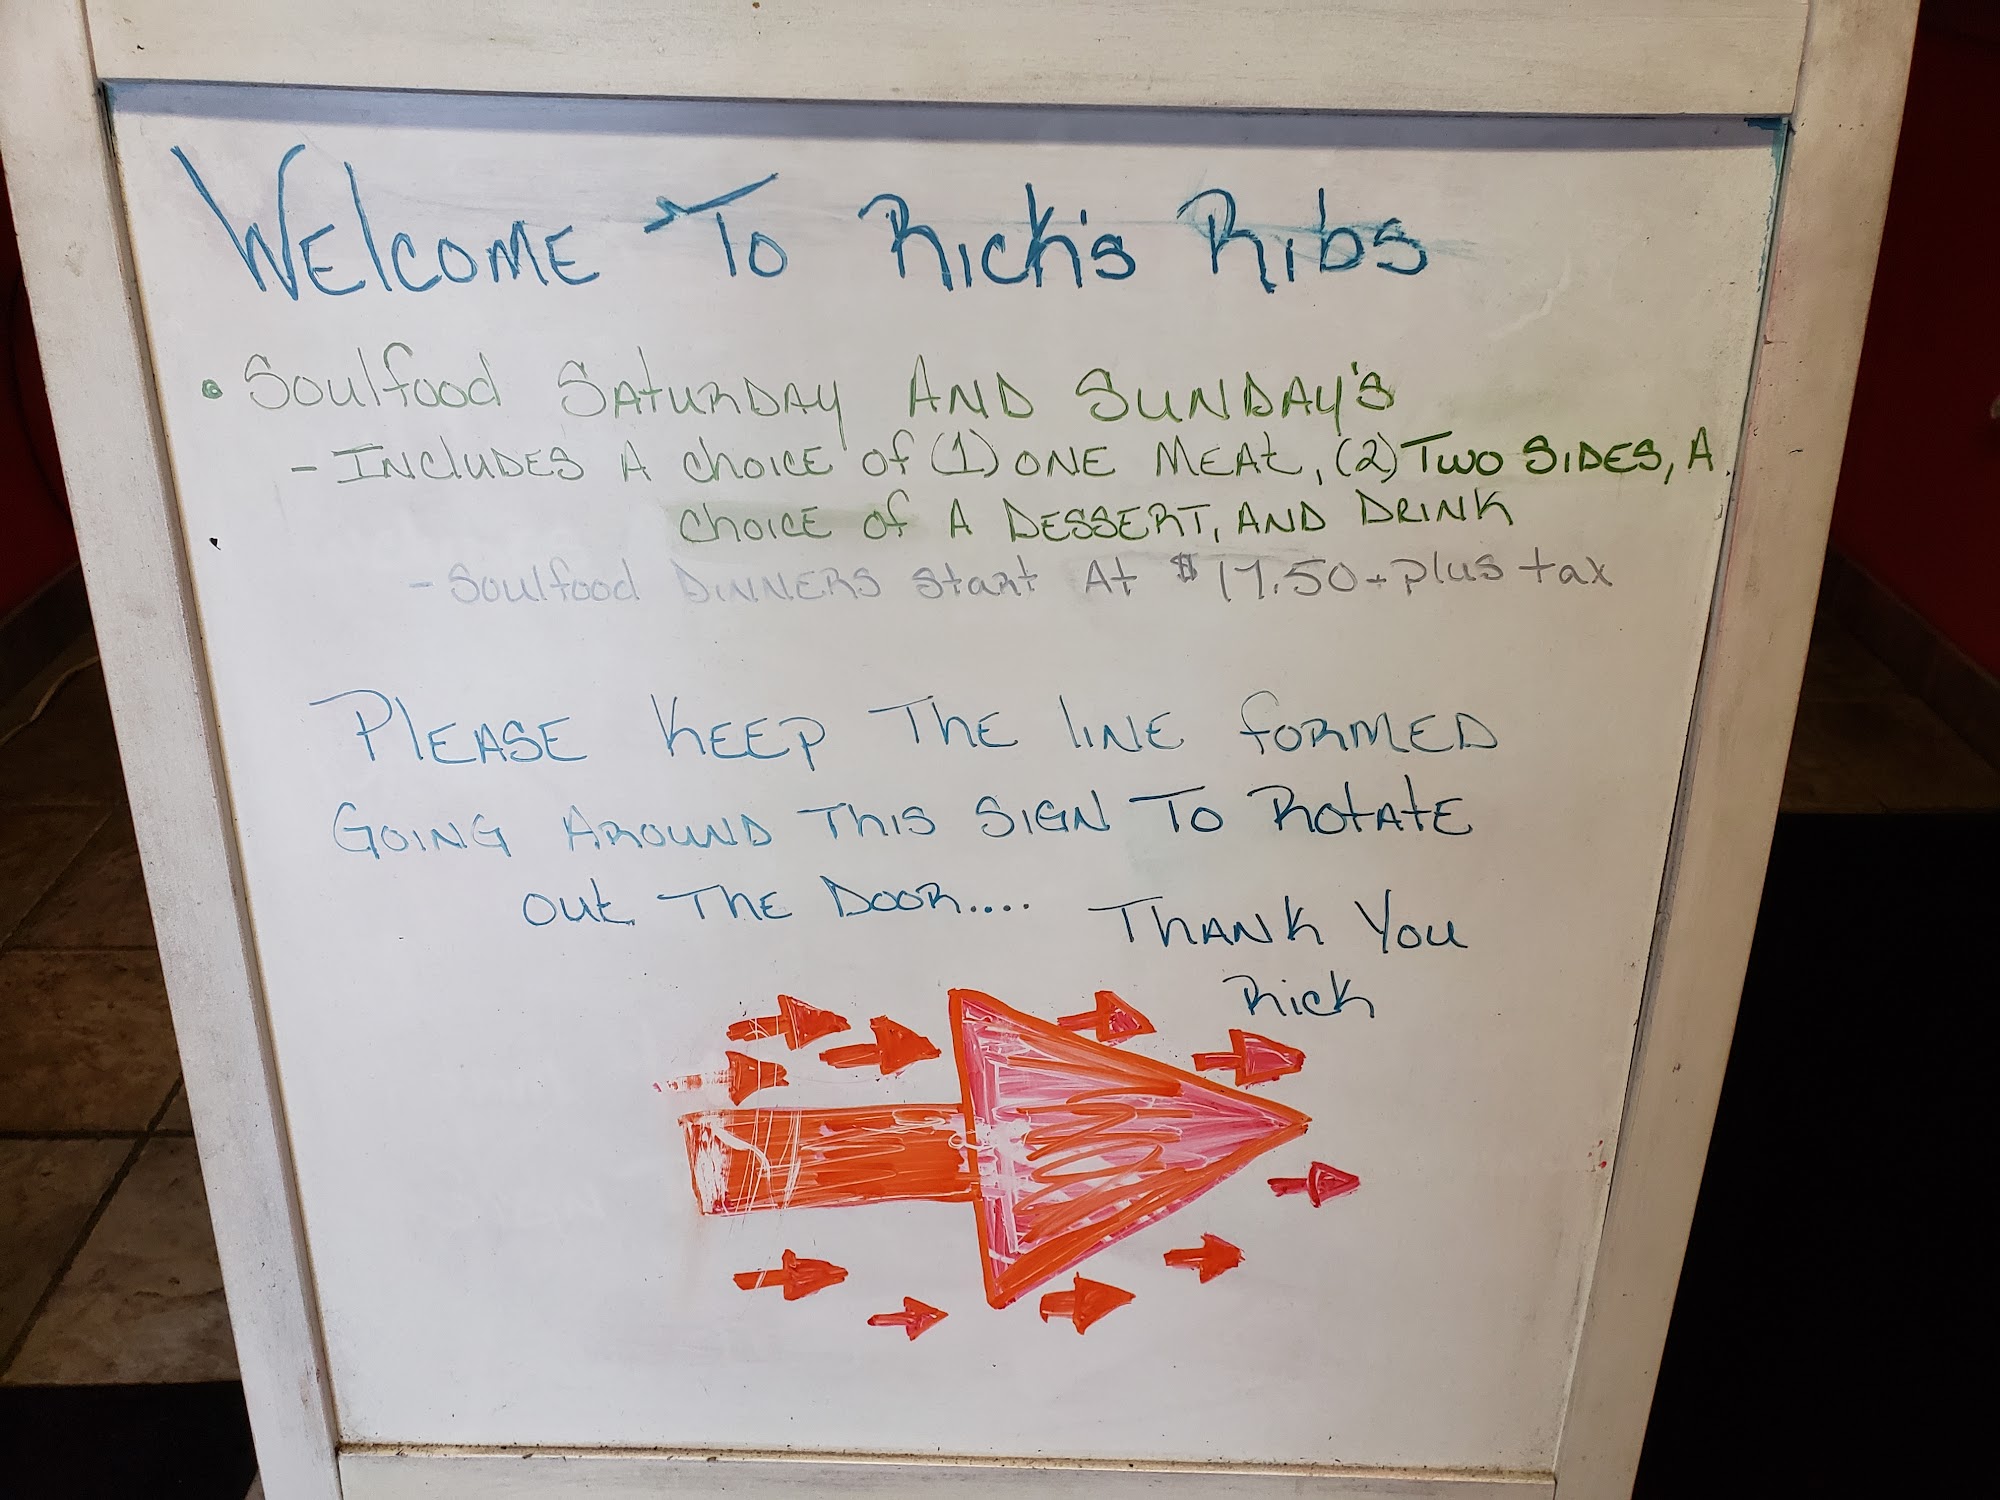 Welcome To Rick's Ribs
• Soulfood Saturday And Sunday's
- Includes A choice of (1) one Meat, (2) Two Sides, A
choice of A Dessert, And Drink
- Soulfood Dinners start At $17.50 + plus tax
Please Keep The line formed
Going Around This Sign To Rotate
out The Door....
Thank You
Rick